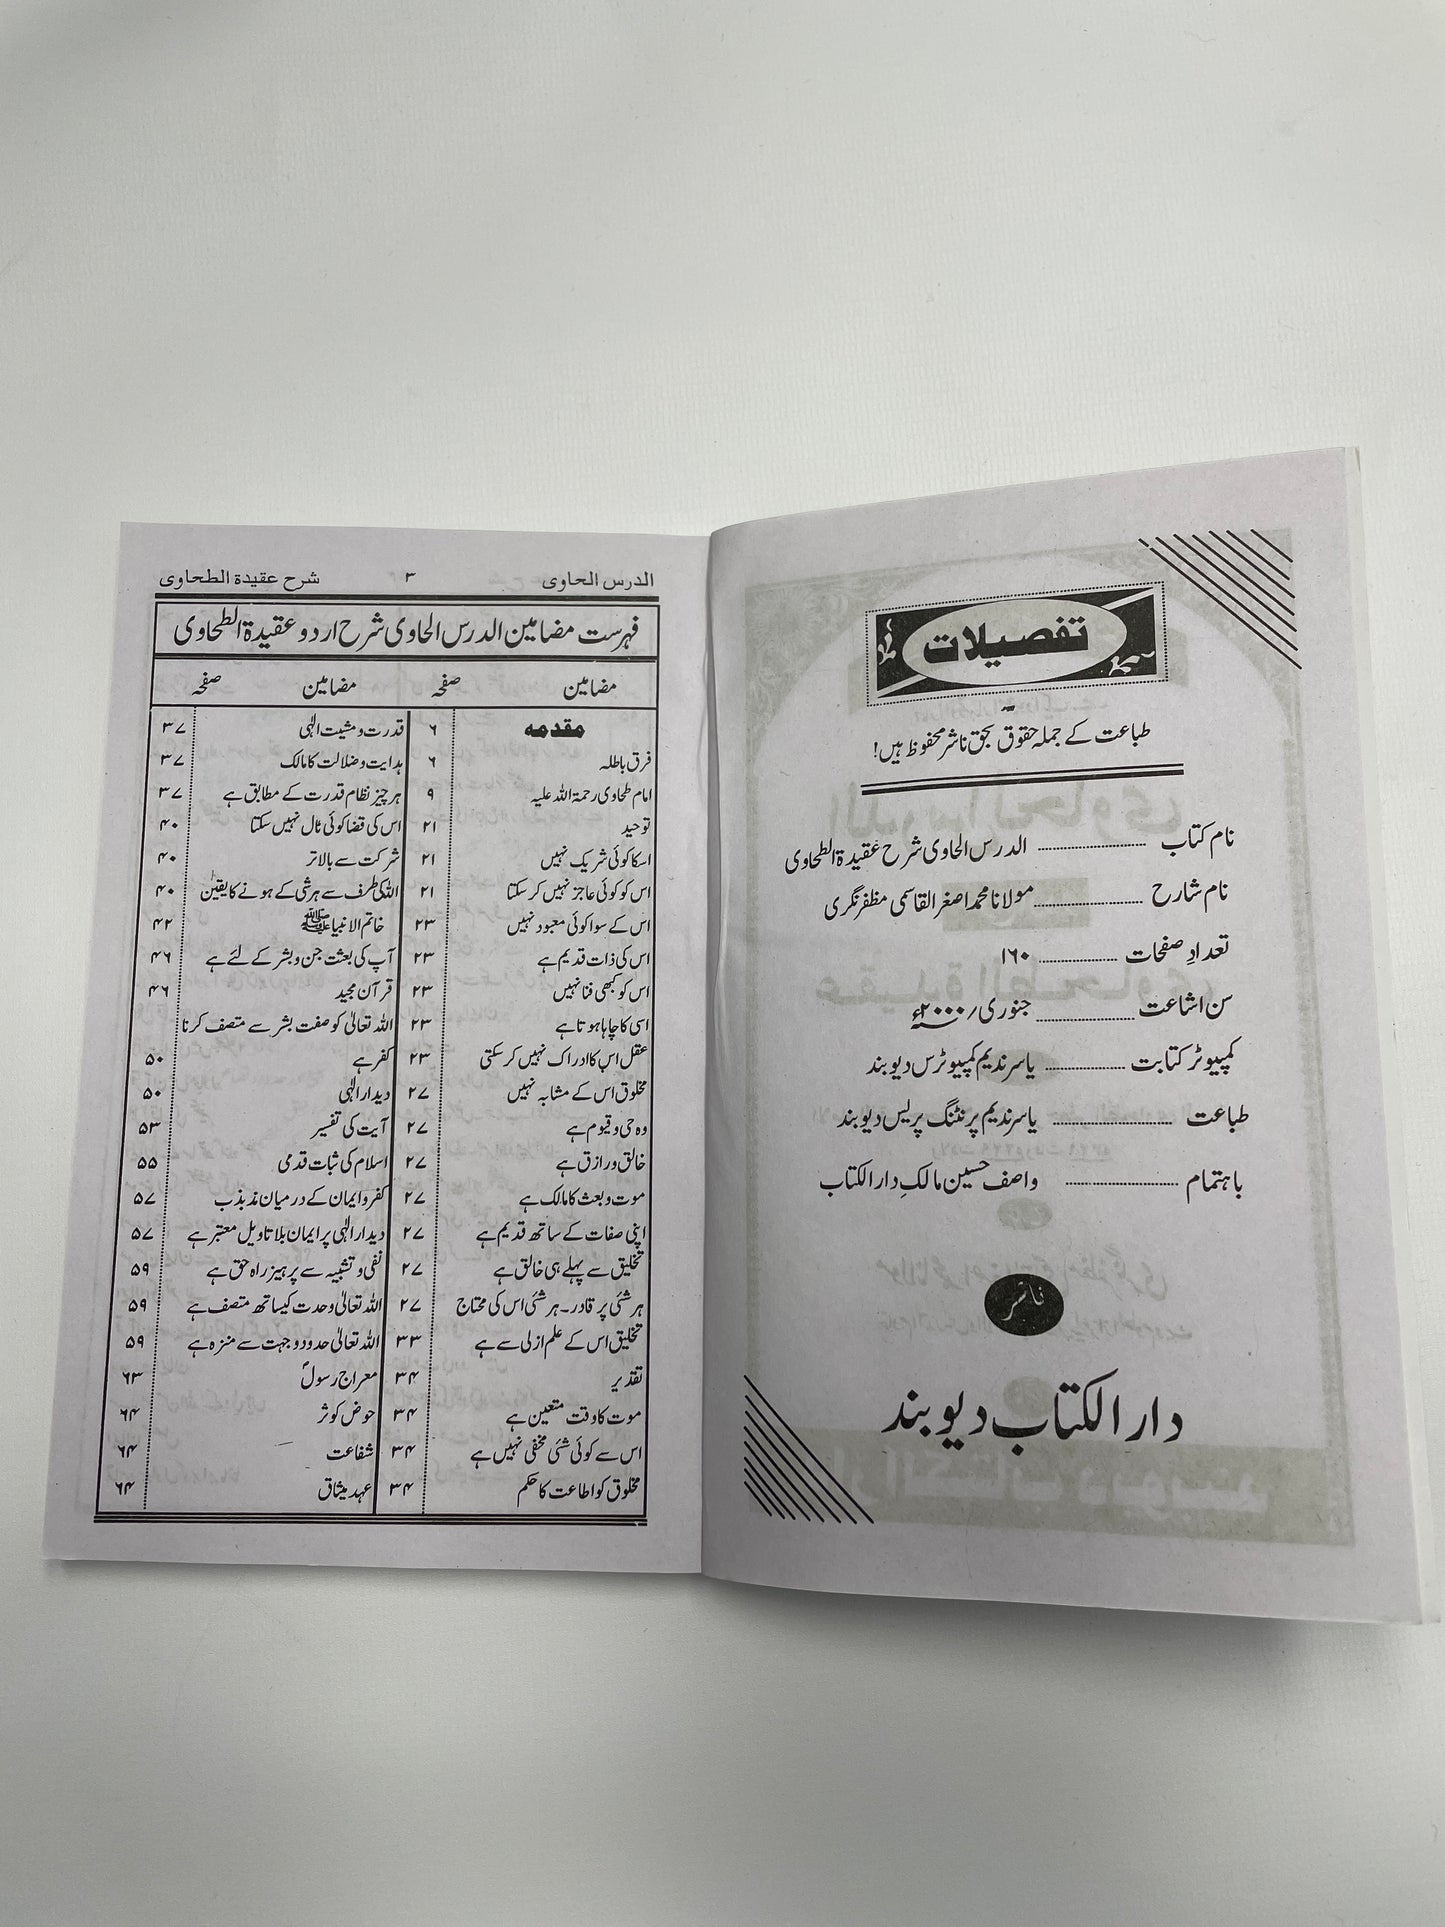 تفصیلات
طباعت کے جملہ حقوق بحق ناشر محفوظ ہیں!
نام کتاب ........ الدرس الحاوی شرح عقیدۃ الطحاوی
نام شارح ........ مولانا محمد اصغر القاسمی مظفر نگری
تعداد صفحات ........ ۱۶۰
سن اشاعت ........ جنوری/ ۲۰۰۰ء
کمپیوٹر کتابت ........ یاسر ندیم کمپیوٹرس دیوبند
طباعت ........ یاسر ندیم پرنٹنگ پریس دیوبند
باہتمام ........ واصف حسین مالک دار الکتاب
ناشر
دار الکتاب دیوبند
الدرس الحاوی ۳ شرح عقیدة الطحاوی
فہرست مضامین الدرس الحاوی شرح اردو عقیدۃ الطحاوی
مضامین صفحہ مضامین صفحہ
مقدمہ ۶ قدرت و مشیت الٰہی ۳۷
فرق باطلہ ۶ ہدایت و ضلالت کا مالک ۳۷
امام طحاوی رحمۃ اللہ علیہ ۹ ہر چیز نظام قدرت کے مطابق ہے ۳۷
توحید ۲۱ اس کی قضا کوئی ٹال نہیں سکتا ۴۰
اسکا کوئی شریک نہیں ۲۱ شرکت سے بالاتر ۴۰
اس کو کوئی عاجز نہیں کر سکتا ۲۱ اللہ کی طرف سے ہر شی کے ہونے کا یقین ۴۰
اس کے سوا کوئی معبود نہیں ۲۳ خاتم الانبیا ﷺ ۴۲
اس کی ذات قدیم ہے ۲۳ آپ کی بعثت جن و بشر کے لئے ہے ۴۶
اس کو کبھی فنا نہیں ۲۳ قرآن مجید ۴۶
اسی کا چاہا ہوتا ہے ۲۳ اللہ تعالیٰ کو صفت بشر سے متصف کرنا
عقل اس کا ادراک نہیں کر سکتی ۲۳ کفر ہے ۵۰
مخلوق اس کے مشابہ نہیں ۲۷ دیدار الٰہی ۵۰
وہ حی و قیوم ہے ۲۷ آیت کی تفسیر ۵۳
خالق و رازق ہے ۲۷ اسلام کی ثبات قدمی ۵۵
موت و بعث کا مالک ہے ۲۷ کفر و ایمان کے درمیان مذبذب ۵۷
اپنی صفات کے ساتھ قدیم ہے ۲۷ دیدار الٰہی پر ایمان بلا تاویل معتبر ہے ۵۷
تخلیق سے پہلے ہی خالق ہے ۲۷ نفی و تشبیہ سے پرہیز راہ حق ہے ۵۹
ہر شئی پر قادر۔ ہر شئی اس کی محتاج ۲۷ اللہ تعالیٰ وحدت کیساتھ متصف ہے ۵۹
تخلیق اس کے علم ازلی سے ہے ۳۳ اللہ تعالیٰ حدود و جہت سے منزہ ہے ۵۹
تقدیر ۳۴ معراج رسولؐ ۶۳
موت کا وقت متعین ہے ۳۴ حوض کوثر ۶۴
اس سے کوئی شئی مخفی نہیں ہے ۳۴ شفاعت ۶۴
مخلوق کو اطاعت کا حکم ۳۴ عہد میثاق ۶۴